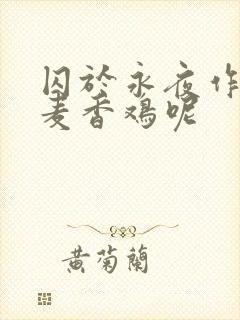 囚於永夜作
麦香鸡呢
黄菊蘭